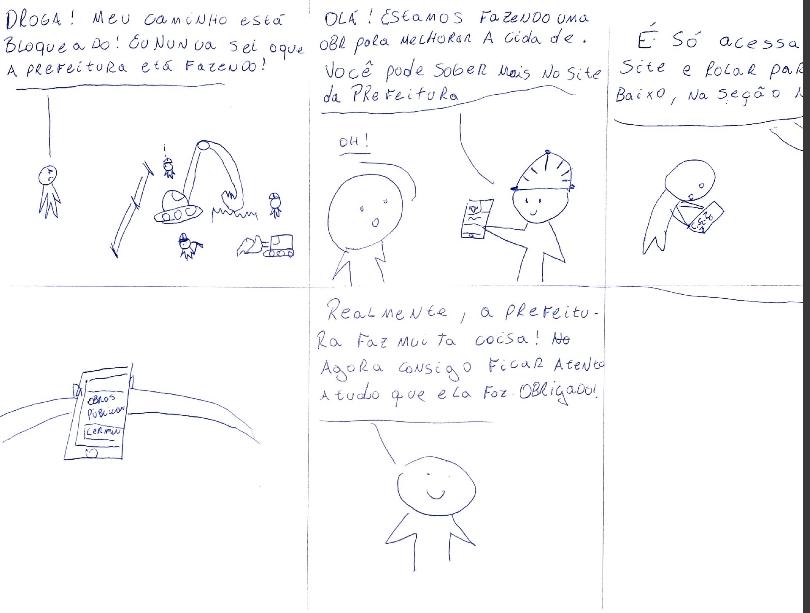 DROGA! MEU CAMINHO ESTÁ
BLOQUEADO! EU NUNUA SEI OQUE
A PREFEITURA ETÁ FAZENDO!
OLÁ! ESTAMOS FAZENDO UMA
OBR POLA MELHORAR A CIDADE.
VOCÊ PODE SOBER MAIS NO SITE
DA PREFEITURA
OH!
É SÓ ACESSA
SITE E ROLAR PAR
BAIXO, NA SEÇÃO
OBROS
PÚBLICAS
REALMENTE, A PREFEITU-
RA FAZ MUITA COISA!
AGORA CONSIGO FICAR ATENTO
A TUDO QUE ELA FAZ. OBRIGADO!